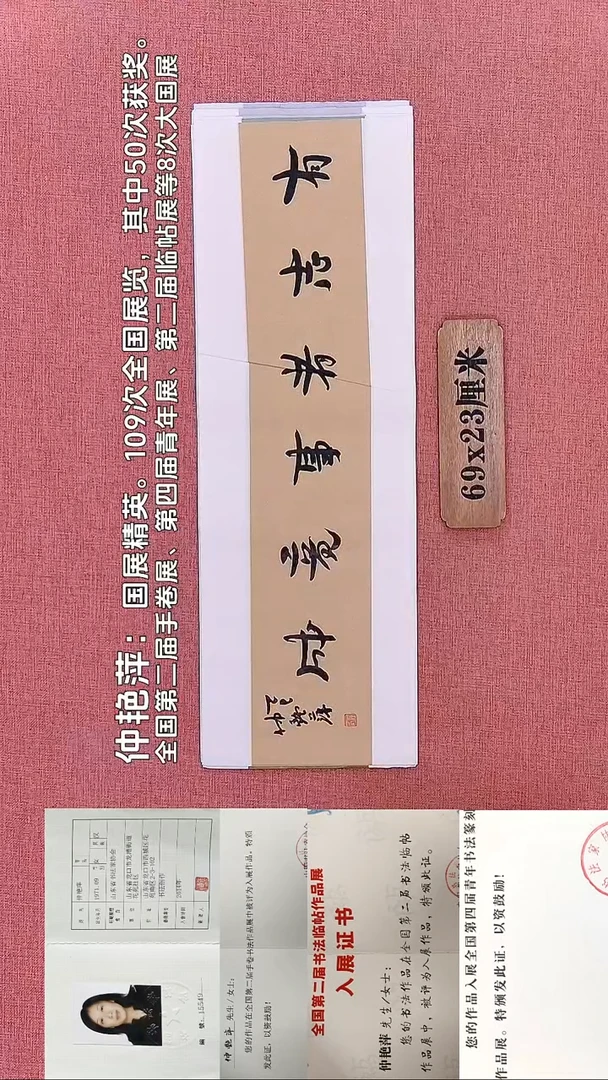 仲艳萍：国展精英。109次全国展览，其中50次获奖。
全国第二届手卷展、第四届青年展、第二届临帖展等8次大国展
有志者事竟成
仲艳萍
69x23厘米
仲艳萍
1971.09
山东省书法家协会
仲艳萍 先生/女士：
您的作品在全国第二届手卷书法作品展中被评为入展作品，特颁
发此证，以资鼓励！
全国第二届书法临帖作品展
入展证书
仲艳萍 先生/女士：
您的书法作品在全国第二届书法临帖
作品展中，被评为入展作品，特颁此证。
您的作品入展全国第四届青年书法篆刻
作品展。特颁发此证，以资鼓励！